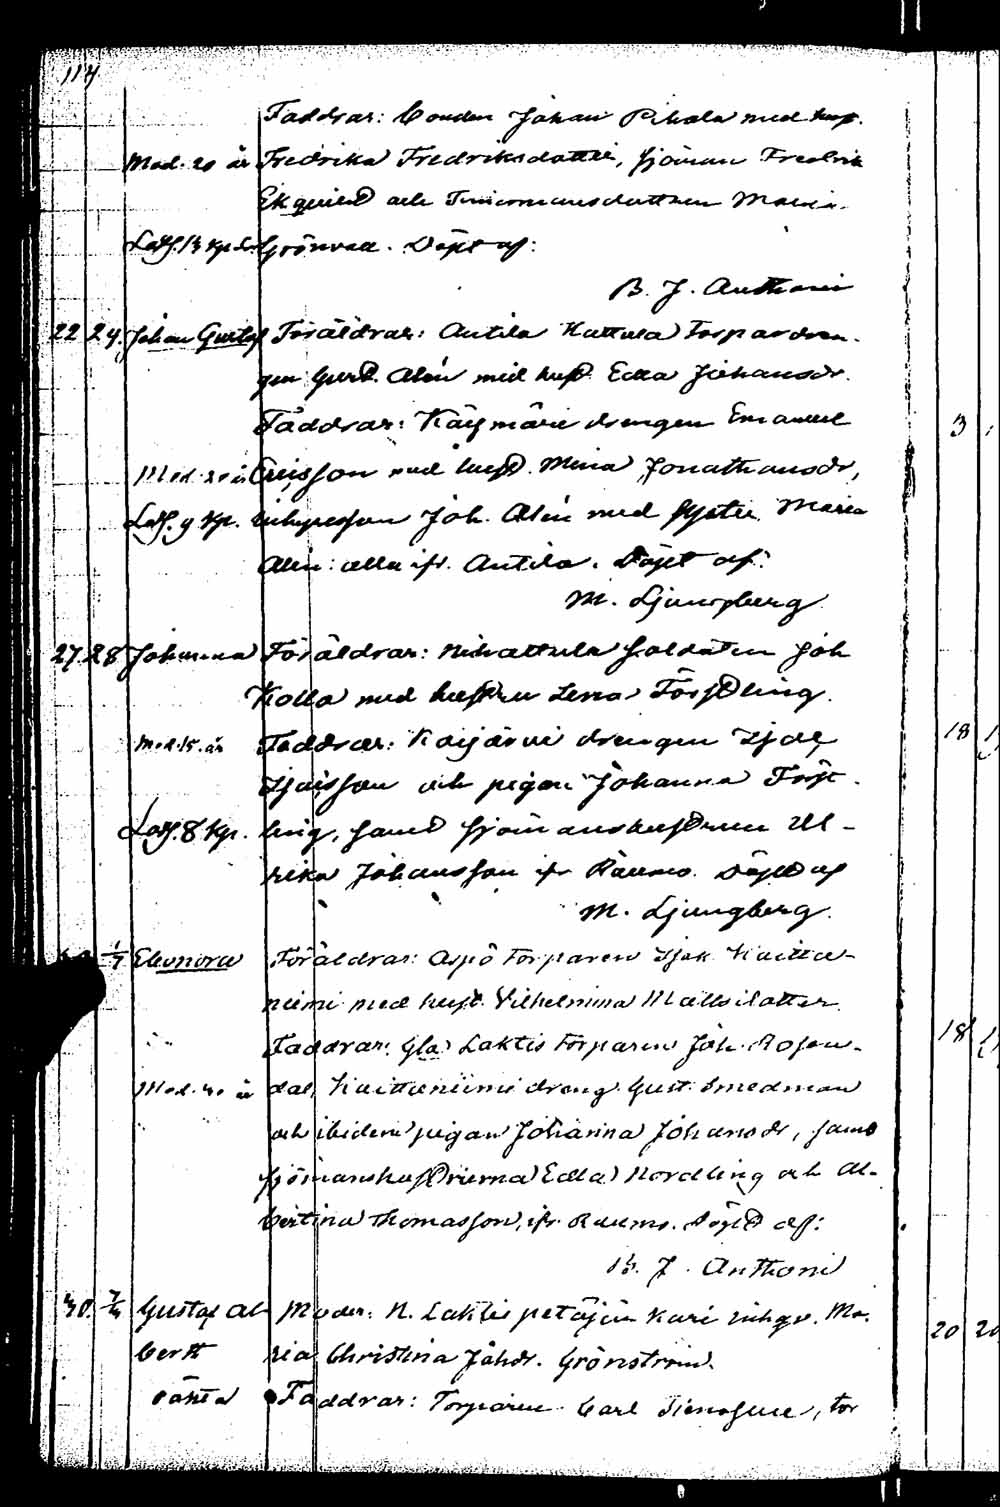 114
Faddrar: Bonden Johan Pihala med hust.
Mod. 20 år Fredrika Fredriksdotter, Sjöman Fredrik
Ekqvist och Timermansdottren Maria
Grönvall. Döpt af:
B. J. Anthoni
22 24. Johan Gustaf Föräldrar: Antila Hattula Torpardren-
gen Gust. Alén med hust. Edla Johansdr.
Faddrar: drengen Emanuel
Mod. med hust. Mina Jonathansdr,
9 Kp. Joh. Alén med Syster Maria
Alén: alla ifr. Antila. Döpt af:
M. Ljungberg
27. 28 Johanna Föräldrar: Soldaten Joh
Kolla med hustru Lena Förstling.
Mod. 15. år Faddrar: drengen
och pigan Johanna Först-
8 Kp. ling, samt sjömanshustrun Ul-
rika Johansson ifr Raumo. Döpt af
M. Ljungberg.
1/7 Eleonora Föräldrar: Aspö Torparen Isak Kaitta-
niemi med hust. Vilhelmina Mattsdotter
Faddrar: Gla Laktis Torparen Joh. Rosen-
Mod. 40 år dal, Kaittaniemi dreng Gust. Smedman
och ibidem pigan Johanna Johansdr, samt
sjömanshustrurna Edla Nordling och Al-
bertina Thomasson, ifr. Raumo. Döpt af:
B. J. Anthoni
30. Gustaf Al- Moder: N. Laktis Kari inhys. Ma-
bert ria Christina Johdr. Grönström.
oäkta Faddrar: Torparen Carl, tor
3
18
18
20 20